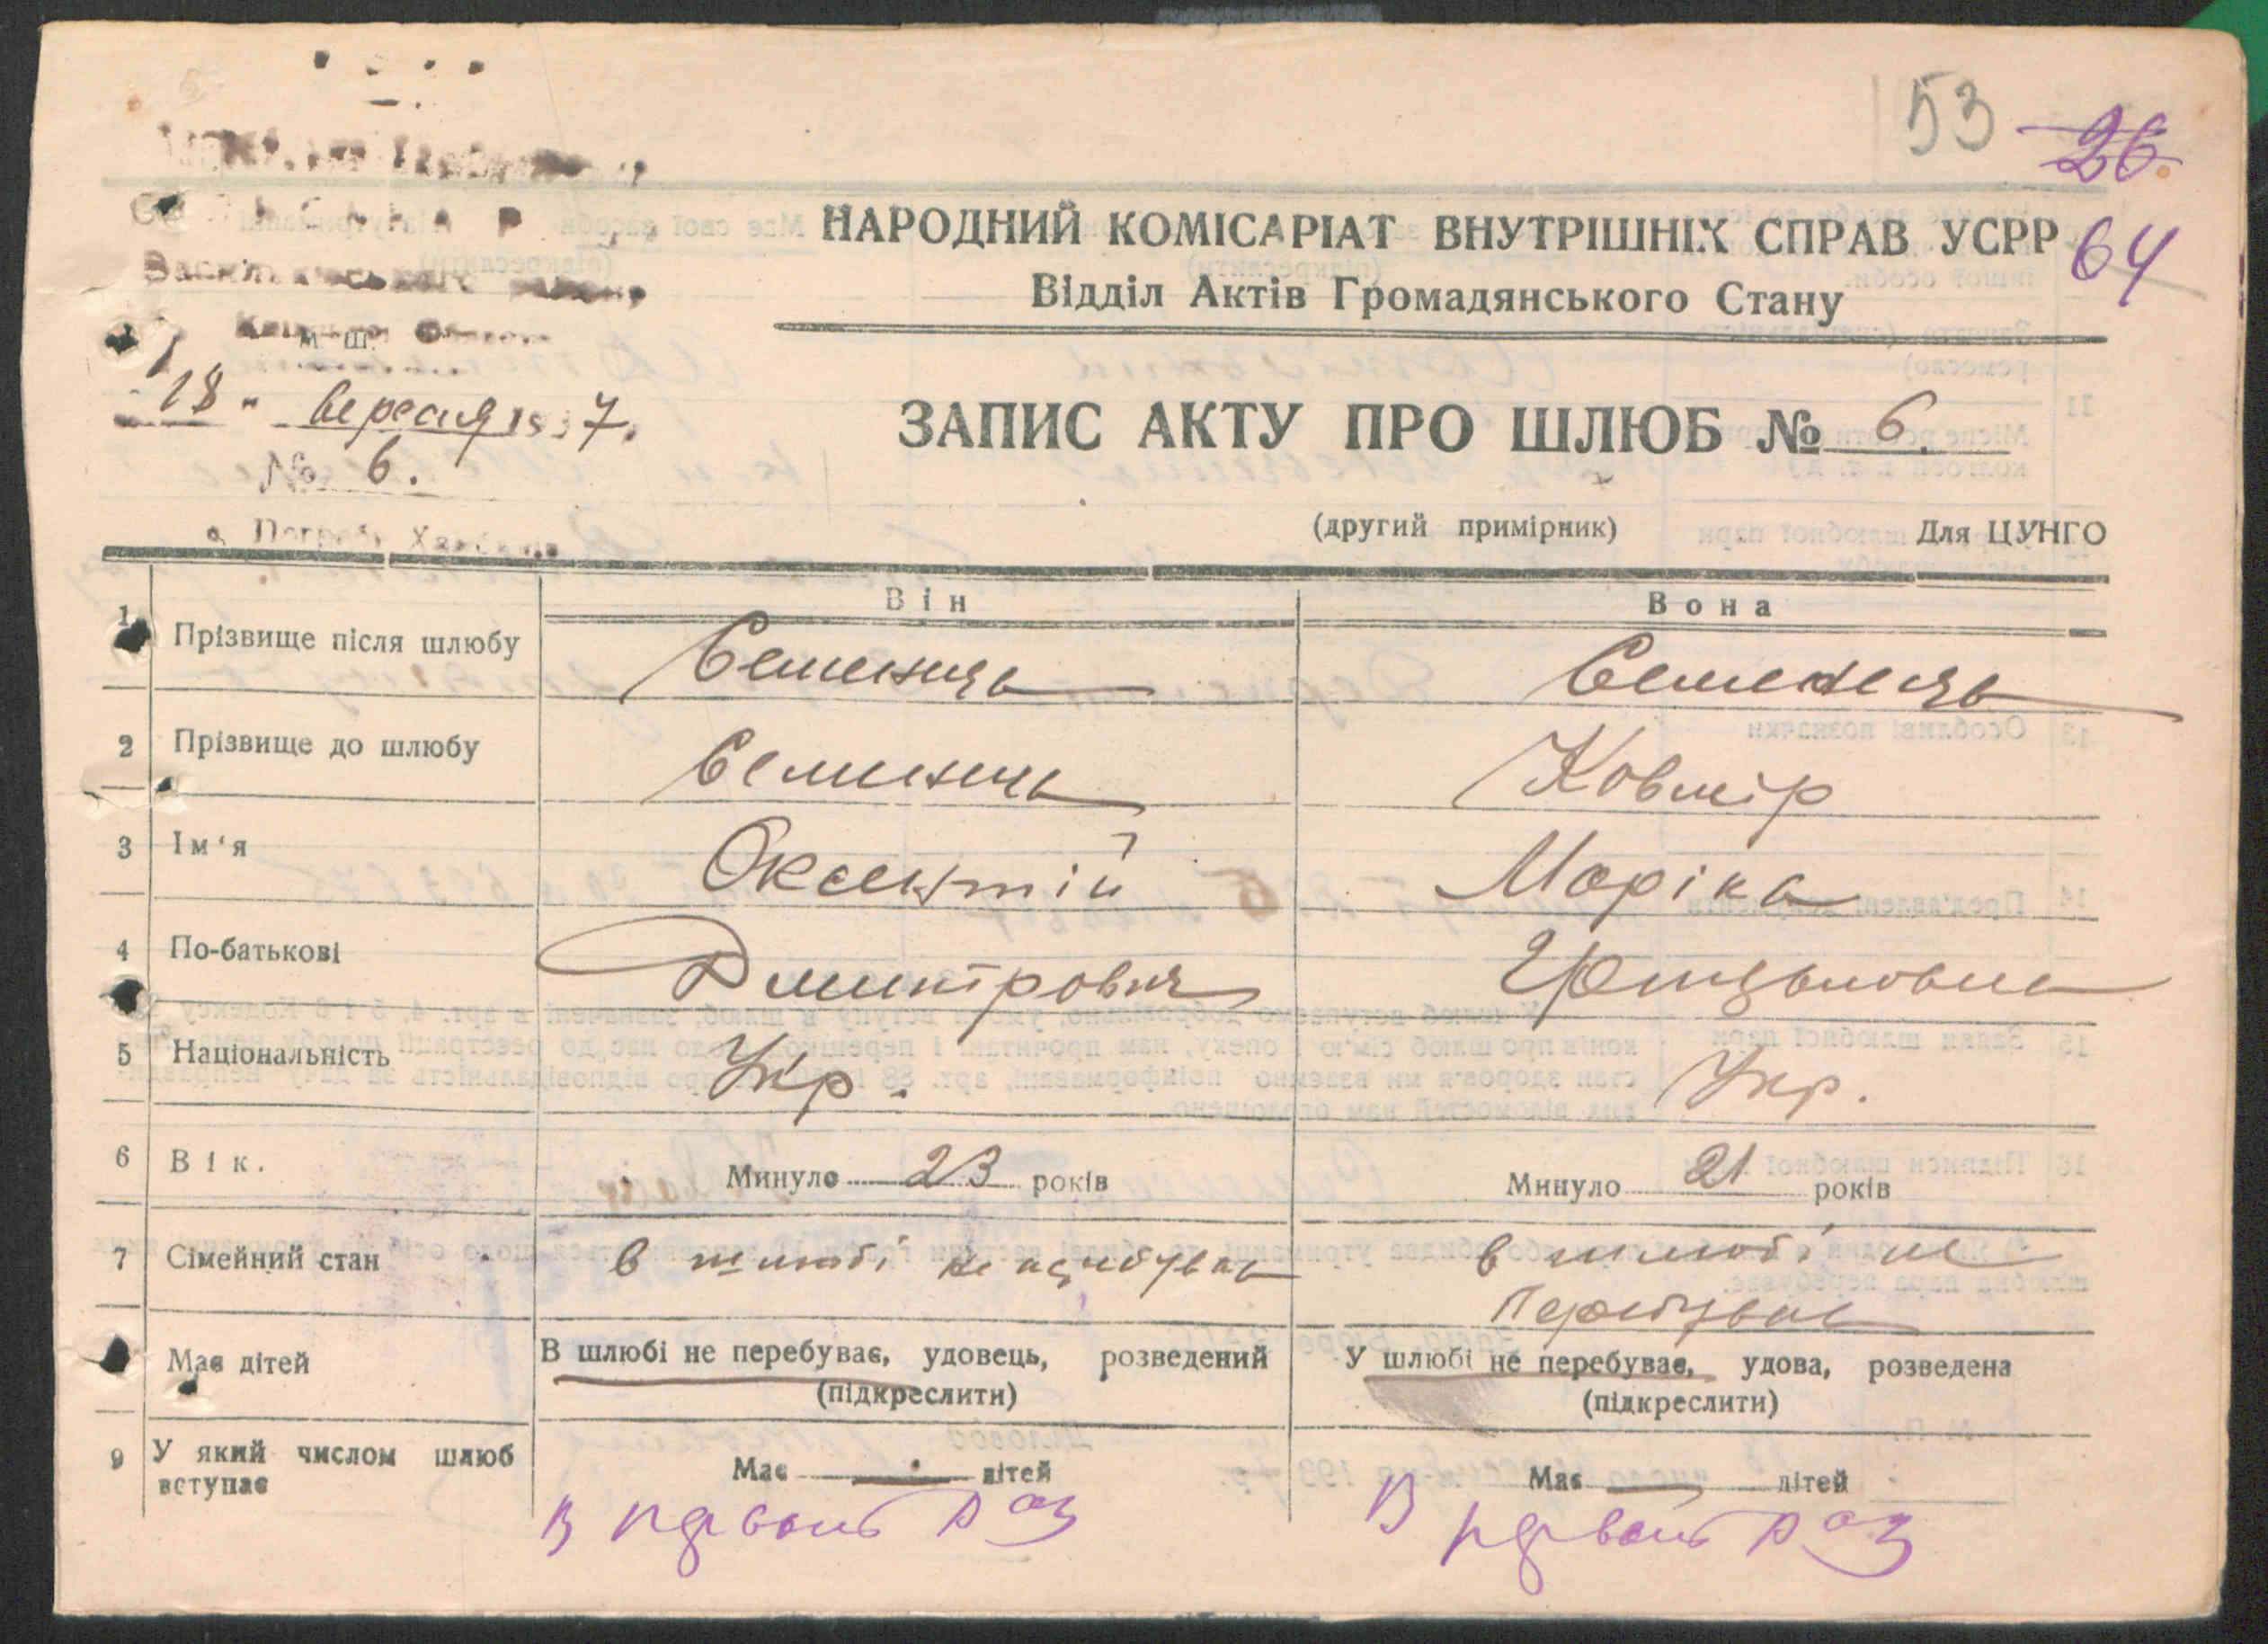 53 26.
64
НАРОДНИЙ КОМІСАРІАТ ВНУТРІШНІХ СПРАВ УСРР
Відділ Актів Громадянського Стану
М. Ш.
18 " вересня 1937.
№ 6.
ЗАПИС АКТУ ПРО ШЛЮБ № 6.
(другий примірник) Для ЦУНГО
Він Вона
1. Прізвище після шлюбу Семенець Семенець
2 Прізвище до шлюбу Семенець Ковмір
3 Ім'я Оксентій Маріка
4 По-батькові Дмитрович
5 Національність Укр. Укр.
6 Вік. Минуло 23 років Минуло 21 років
7 Сімейний стан в шлюбі не перебував в шлюбі не
перебувала
Має дітей В шлюбі не перебуває, удовець, розведений У шлюбі не перебуває, удова, розведена
(підкреслити) (підкреслити)
9 У який числом шлюб вступає Має — дітей Має — дітей
В первый раз В первый раз